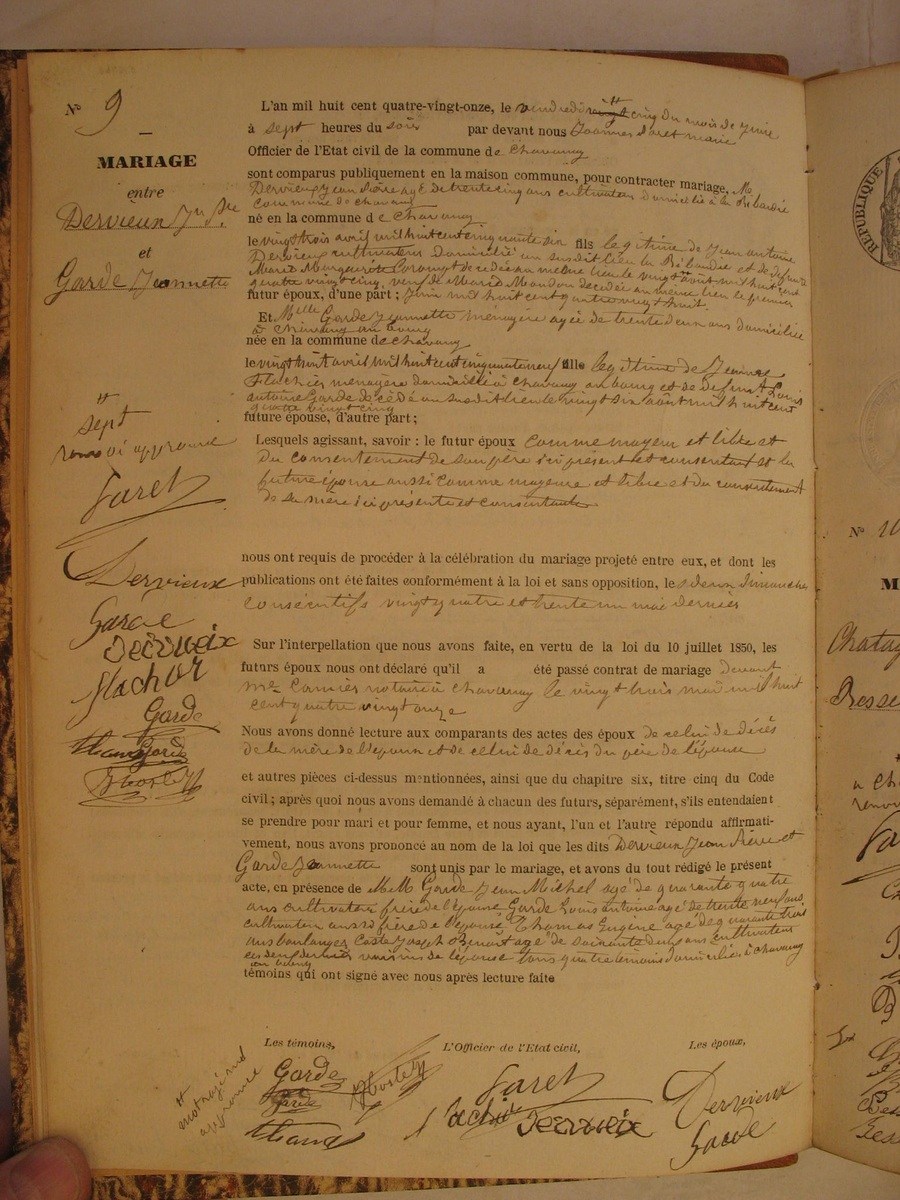 N° 9
MARIAGE
entre
Dervieux Jn Pre
et
Garde Jeannette
L'an mil huit cent quatre-vingt-onze, le vendredi vingt cinq du mois de juin
à sept heures du soir par devant nous Joannes Faret maire
Officier de l'Etat civil de la commune de Chavanay
sont comparus publiquement en la maison commune, pour contracter mariage, M.
Dervieux Jean Pierre agé de trente cinq ans cultivateur domicilié à la Ribaudie
commune de Chavanay
né en la commune de Chavanay
le vingt trois avril mil huit cent cinquante six fils légitime de Jean Antoine
Dervieux cultivateur domicilié au susdit lieu la Ribaudie et de défunte
Marie Marguerite décédée au même lieu le vingt août mil huit cent
quatre vingt cinq, veuf de Marie décédée au même lieu le premier
futur époux, d'une part; juin mil huit cent quatre vingt huit
Et Melle Garde Jeannette ménagère agée de trente deux ans domiciliée
à Chavanay au bourg
née en la commune de Chavanay
le vingt huit avril mil huit cent cinquante neuf fille légitime de
Flachier ménagère domiciliée à Chavanay au bourg et de défunt Louis
Antoine Garde décédé au susdit lieu le vingt six août mil huit cent
quatre vingt cinq
future épouse, d'autre part;
Lesquels agissant, savoir: le futur époux comme majeur et libre et
du consentement de son père ici présent et consentant et la
future épouse aussi comme majeure et libre et du consentement
de sa mère ici présente et consentante
sept
renvoi approuvé
Faret
Dervieux
Garde
Dervieix
Flacher
Garde
Garde
nous ont requis de procéder à la célébration du mariage projeté entre eux, et dont les
publications ont été faites conformément à la loi et sans opposition, les deux dimanches
consécutifs vingt quatre et trente un mai dernier
Sur l'interpellation que nous avons faite, en vertu de la loi du 10 juillet 1850, les
futurs époux nous ont déclaré qu'il a été passé contrat de mariage devant
Me notaire à Chavanay le vingt trois mai mil huit
cent quatre vingt onze
Nous avons donné lecture aux comparants des actes des époux de celui de décès
de la mère de l'époux et de celui de décès du père de l'épouse
et autres pièces ci-dessus mentionnées, ainsi que du chapitre six, titre cinq du Code
civil; après quoi nous avons demandé à chacun des futurs, séparément, s'ils entendaient
se prendre pour mari et pour femme, et nous ayant, l'un et l'autre répondu affirmati-
vement, nous avons prononcé au nom de la loi que les dits Dervieux Jean Pierre et
Garde Jeannette sont unis par le mariage, et avons du tout rédigé le présent
acte, en présence de MM Garde Jean Michel agé de quarante quatre
ans cultivateur frère de l'épouse Garde Louis Antoine agé de trente neuf ans
cultivateur aussi frère de l'épouse Thomas Eugène agé de quarante trois
ans boulanger Coste Joseph Benoit agé de soixante deux ans cultivateur
ces deux derniers voisins de l'épouse tous quatre témoins domiciliés à Chavanay
au bourg
témoins qui ont signé avec nous après lecture faite
Les témoins,
L'Officier de l'Etat civil,
Les époux,
mot rayé nul
approuvé
Garde
Garde
Faret
Dervieix
Dervieux
Garde
REPUBLIQUE
N°